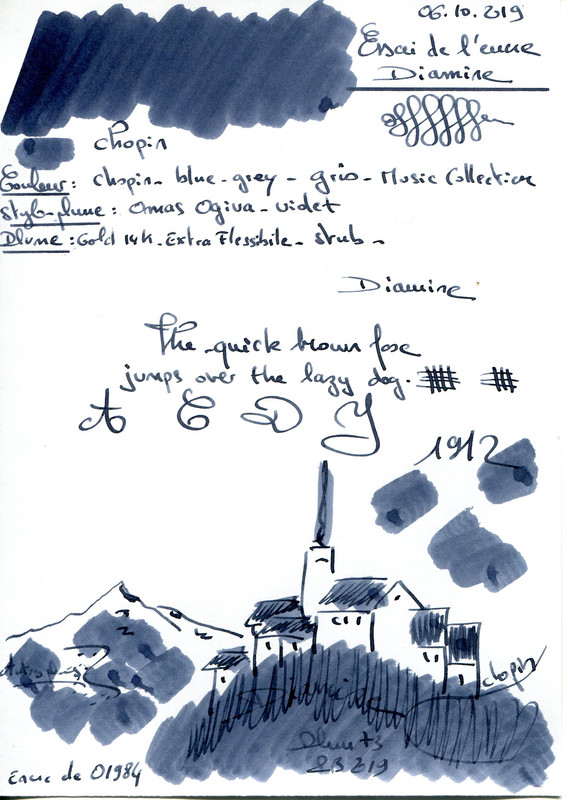 06.10.219
Essai de l'encre
Diamine
Chopin
Couleur: Chopin - blue-grey - gris - Music Collection
Stylo-plume: Omas Ogiva - violet
Plume: Gold 14K - Extra Flessibile - stub -
Diamine
The quick brown fox
jumps over the lazy dog.
A C D Y
1912
Chopin
Diamine
2B 219
Encre de 01984